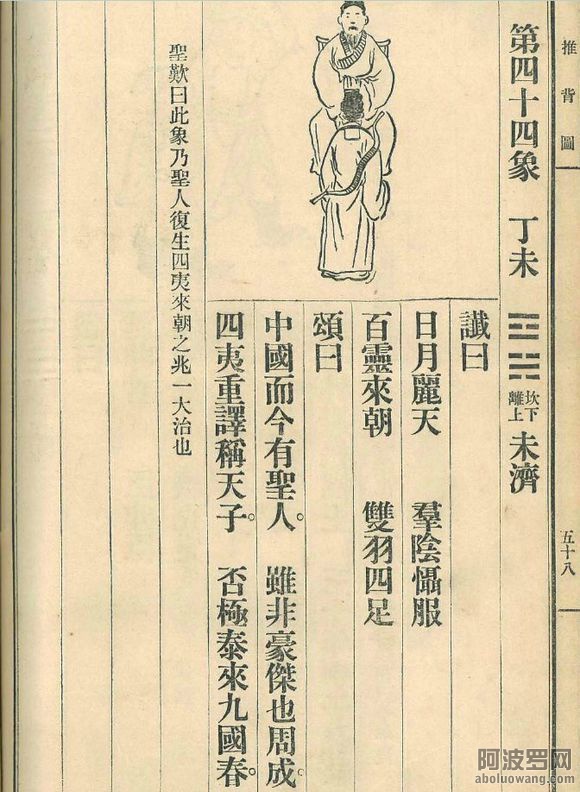 推背圖
五十八
第四十四象 丁未 坎下離上 未濟
讖曰
日月麗天 羣陰懾服
百靈來朝 雙羽四足
頌曰
中國而今有聖人。 雖非豪傑也周成。
四夷重譯稱天子。 否極泰來九國春。
聖歎曰此象乃聖人復生四夷來朝之兆一大治也
阿波罗网
aboluowang.com